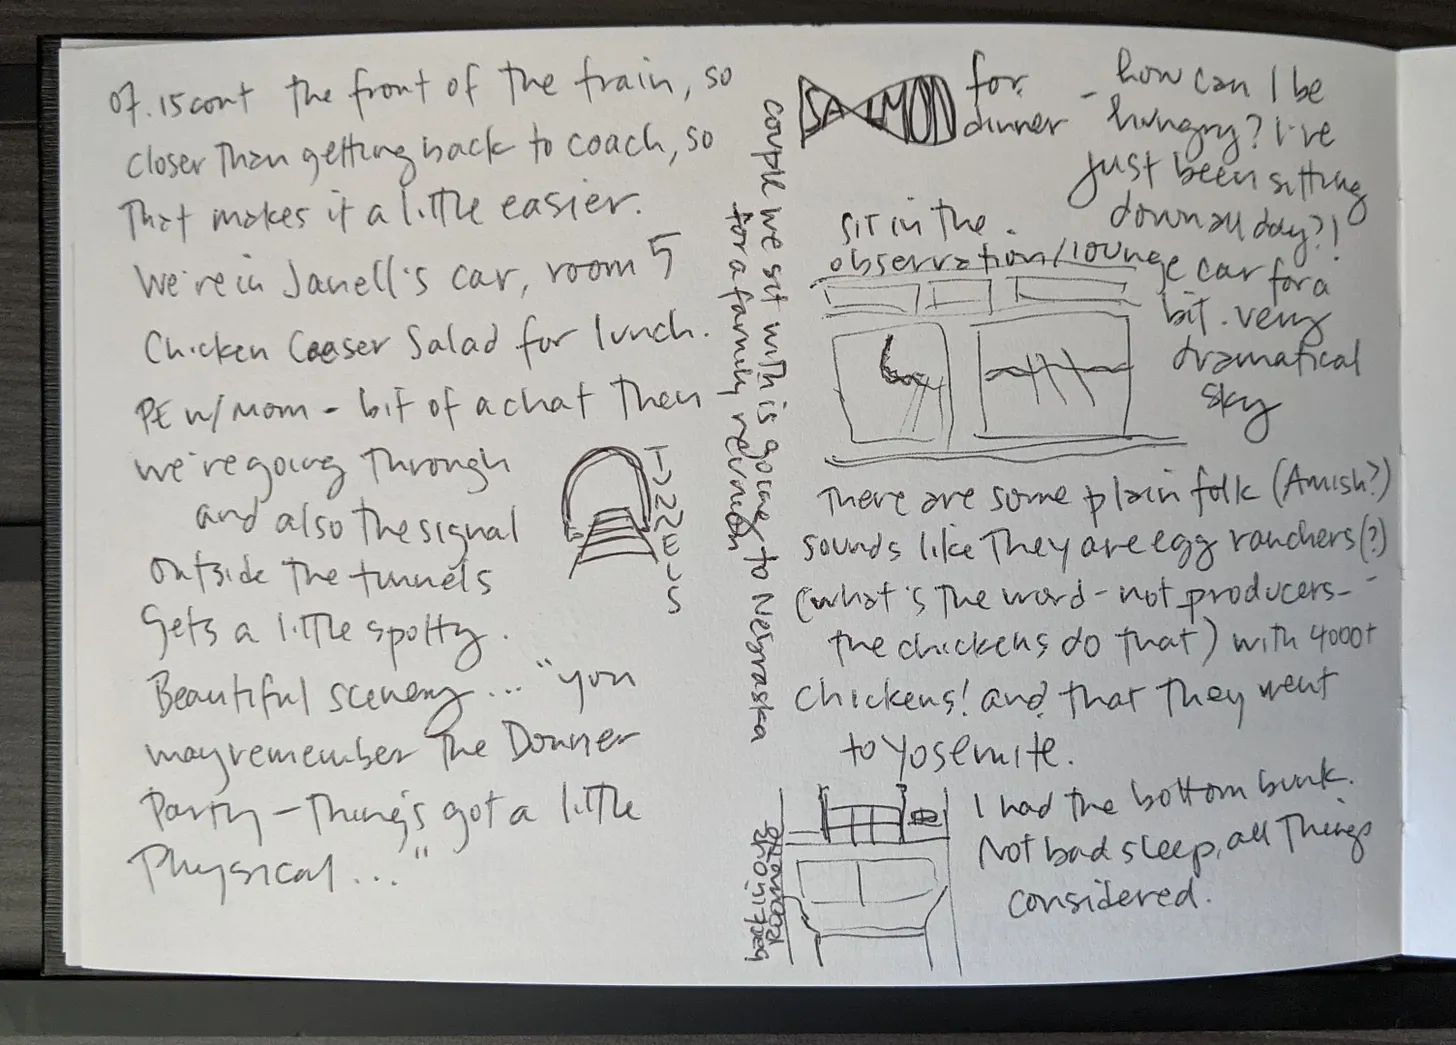 07.15 cont the front of the train, so
closer than getting back to coach, so
that makes it a little easier.
We're in Janell's car, room 5
Chicken Ceaser Salad for lunch.
PE w/ Mom - bit of a chat then
we're going through
TUNNELS
and also the signal
outside the tunnels
gets a little spotty.
Beautiful scenery... "you
may remember the Donner
Party - things got a little
Physical..."
couple we sit with is going to Nebraska
for a family reunion
SALMON for
dinner
- how can I be
hungry? I've
just been sitting
down all day?!
sit in the
observation/lounge car for a
bit. very
dramatical
sky
There are some plain folk (Amish?)
sounds like they are egg ranchers (?)
(what's the word - not producers -
the chickens do that) with 4000+
chickens! and that they went
to Yosemite.
I had the bottom bunk.
Not bad sleep, all things
considered.